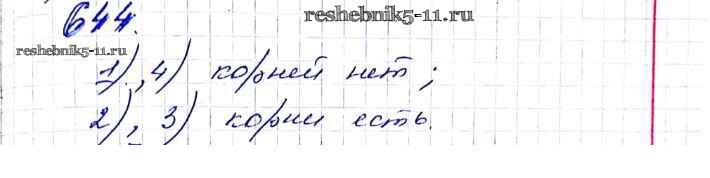 644.
reshebnik5-11.ru
1), 4) корней нет;
2), 3) корни есть.
reshebnik5-11.ru